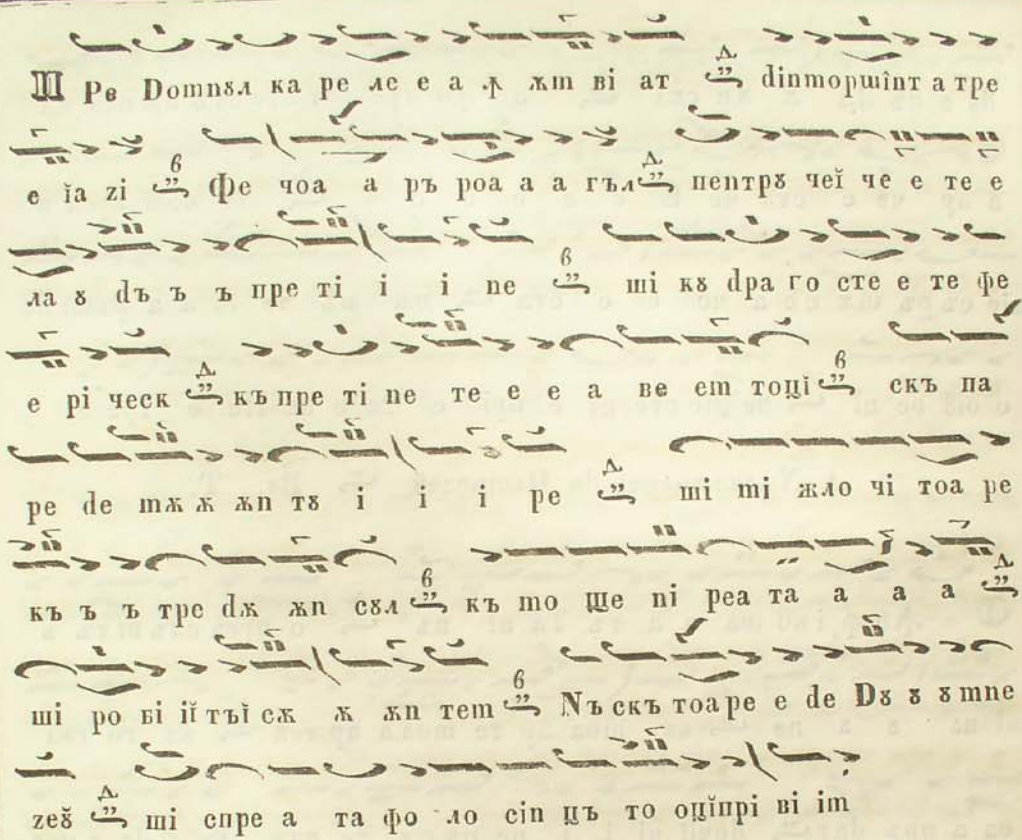 Ш Рѳ Domnȣл ка ре ле е а ꙟ ѫm ві ат din mopшînт а тре
е їа zi Фе чоа а ръ роа а а гъл пентрȣ чеї че е те е
ла ȣ dъ ъ ъ пре ті і і не ші кȣ dра го сте е те фе
е рі ческ къ пре ті не те е е а ве em тоці скъ па
ре de mѫ ѫ ѫn тȣ і і і ре ші mi жло чі тоа ре
къ ъ ъ тре dѫ ѫn сȣл къ mo ще ні реа та а а а
ші ро бі iї тъї сѫ ѫ ѫn тem Nъ скъ тоаре е de Dȣ ȣ ȣ mne
zeȣ̆ ші спре а та фо ло сіn цъ то оцїпрі ві im